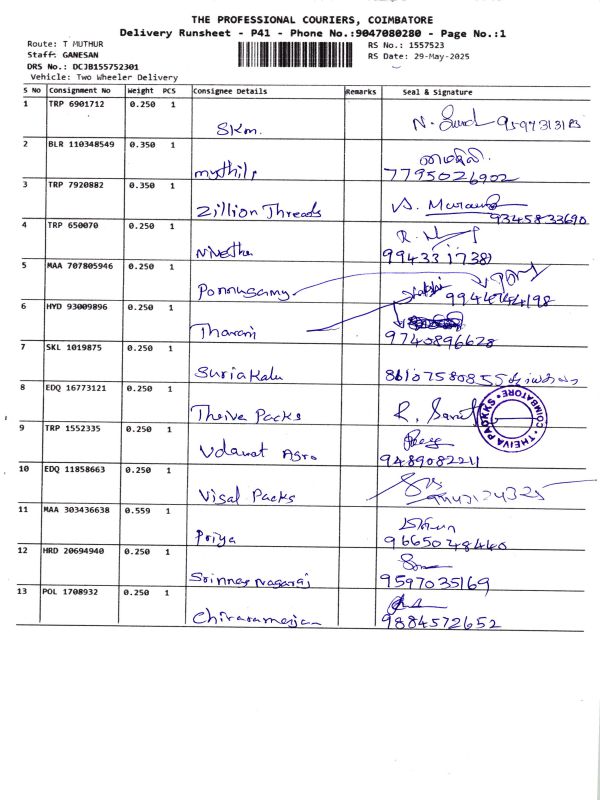 THE PROFESSIONAL COURIERS, COIMBATORE
Delivery Runsheet - P41 - Phone No.:9047080280 - Page No.:1
Route: T MUTHUR
Staff: GANESAN
DRS No.: DCJB155752301
Vehicle: Two Wheeler Delivery
RS No.: 1557523
RS Date: 29-May-2025
S No Consignment No Weight PCS Consignee Details Remarks Seal & Signature
1 TRP 6901712 0.250 1
Skm.
2 BLR 110348549 0.350 1
mythili
7795026902
3 TRP 7920882 0.350 1
Zillion Threads
9345833690
4 TRP 650070 0.250 1
Nivetha
5 MAA 707805946 0.250 1
Ponnusamy
6 HYD 93009896 0.250 1
Tharani
9740896628
7 SKL 1019875 0.250 1
Suriakala
8610758085
8 EDQ 16773121 0.250 1
Theive Packs
THEIVA PACKKS
COIMBATORE
9 TRP 1552335 0.250 1
Udawat Agro
9489082211
10 EDQ 11858663 0.250 1
Visal Packs
11 MAA 303436638 0.559 1
Priya
9665048440
12 HRD 20694940 0.250 1
9597035169
13 POL 1708932 0.250 1
9884572652